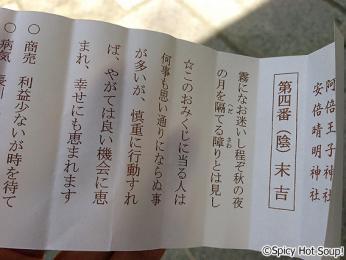 阿倍王子神社
安倍晴明神社
第四番（陰）末吉
霧になお迷いし程ぞ秋の夜
の月を隔てる障りとは見し
へだ
さわ
☆このおみくじに当る人は
何事も思い通りにならぬ事
が多いが、慎重に行動すれ
ば、やがては良い機会に恵
まれ、幸せにも恵まれます
○ 商売 利益少ないが時を待て
○ 病気 長引
©Spicy Hot Soup!